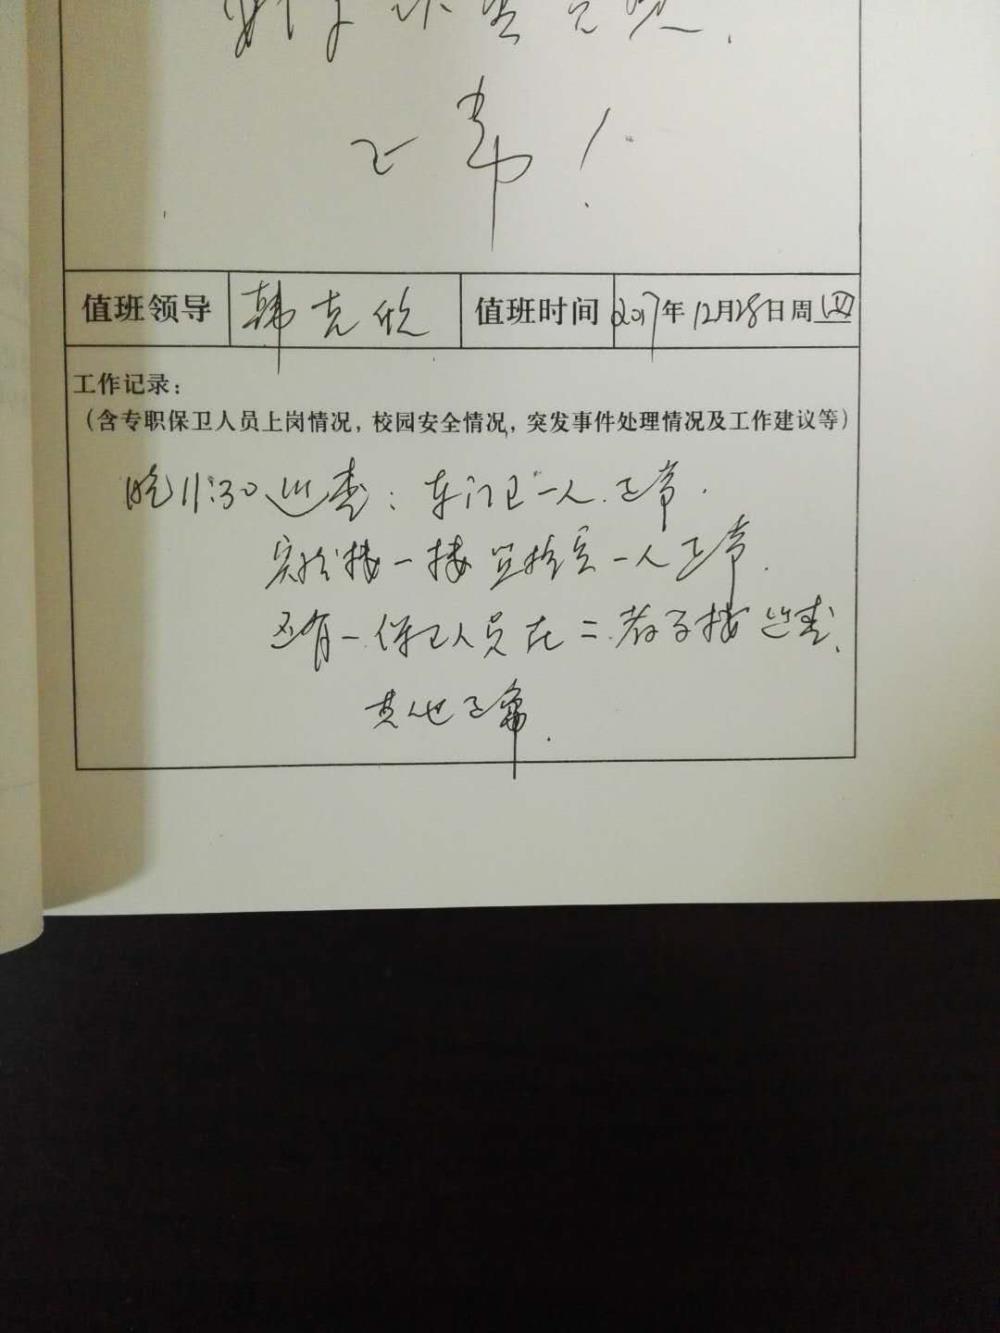 正常!
值班领导 韩克欣 值班时间 2017年12月28日周四
工作记录:
(含专职保卫人员上岗情况,校园安全情况,突发事件处理情况及工作建议等)
晚11:30巡查:东门卫一人.正常.
实验楼一楼监控室一人正常.
还有一保卫人员在二教学楼巡查.
其他正常.